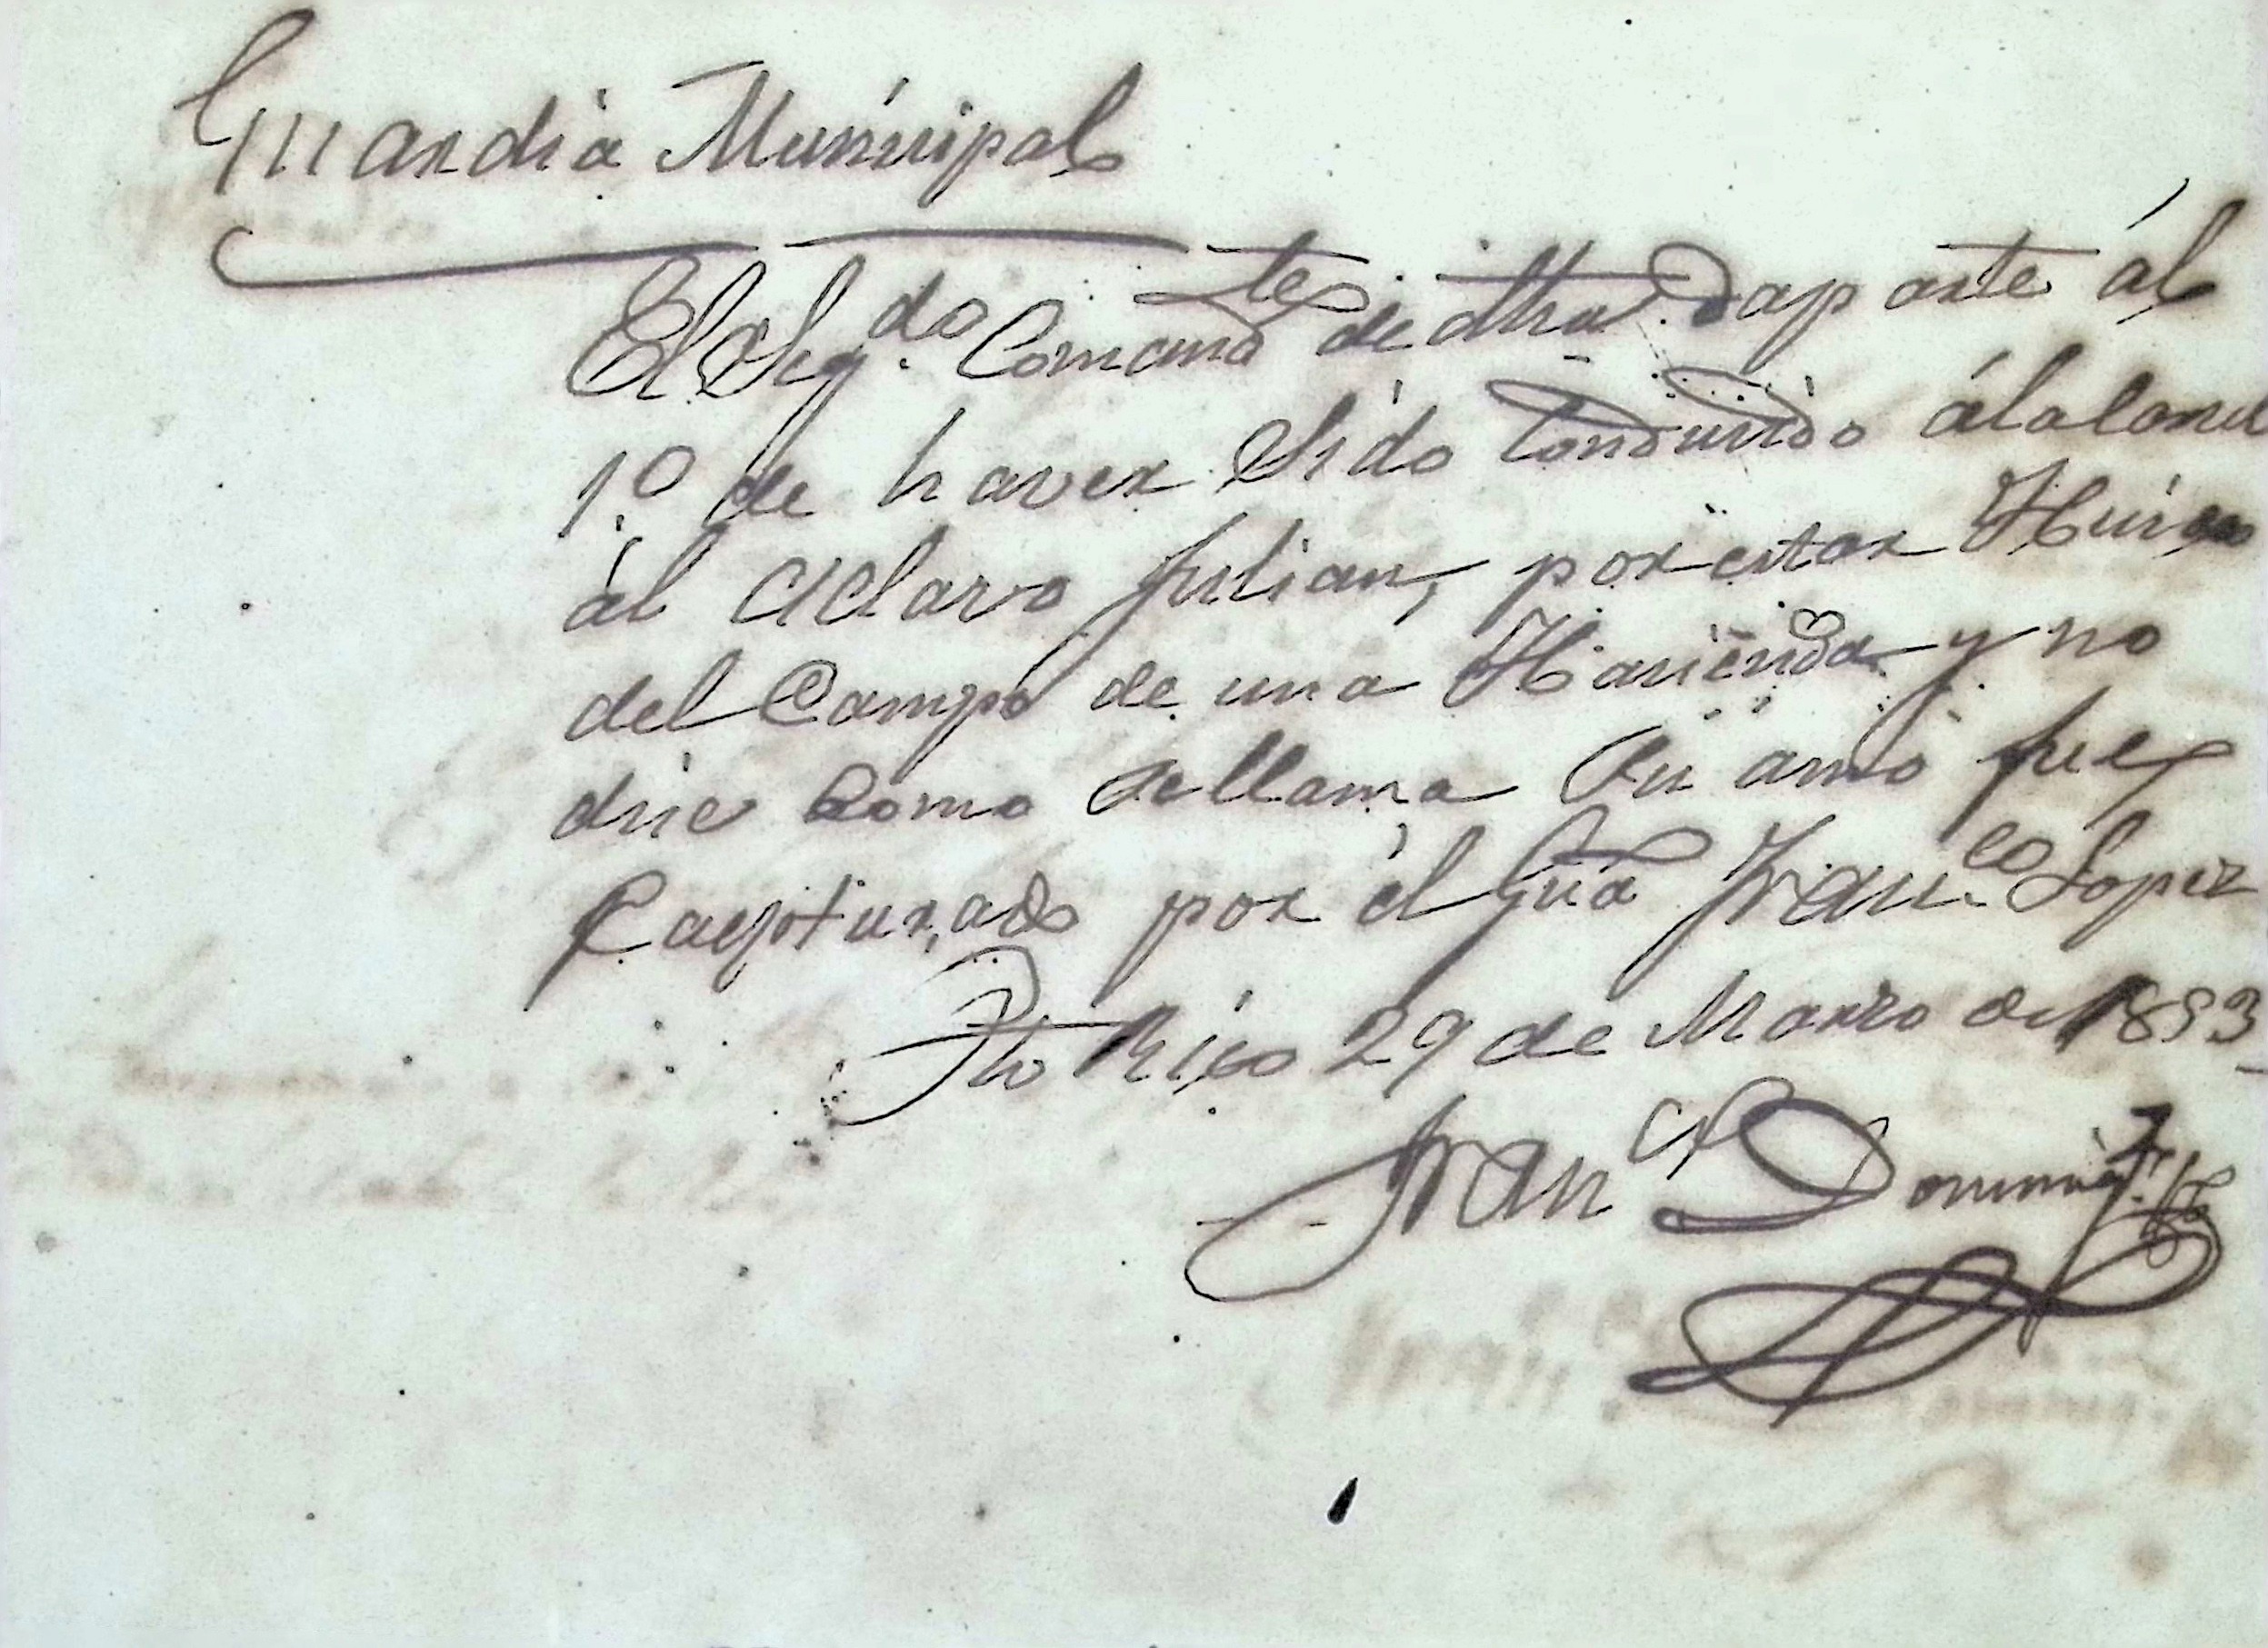 Guardia Municipal
El Seg.do Comand.te de dha. da parte ál
1.º de haver sido Conducido á la Carcel
ál Esclavo Julian, por estar Huido
del Campo de una Hacienda y no
dice Como se llama Su amo fue
Capturado por él Gua Fran.co Lopez
Pto Rico 29 de Marzo de 1853
Fran.co Domin.z